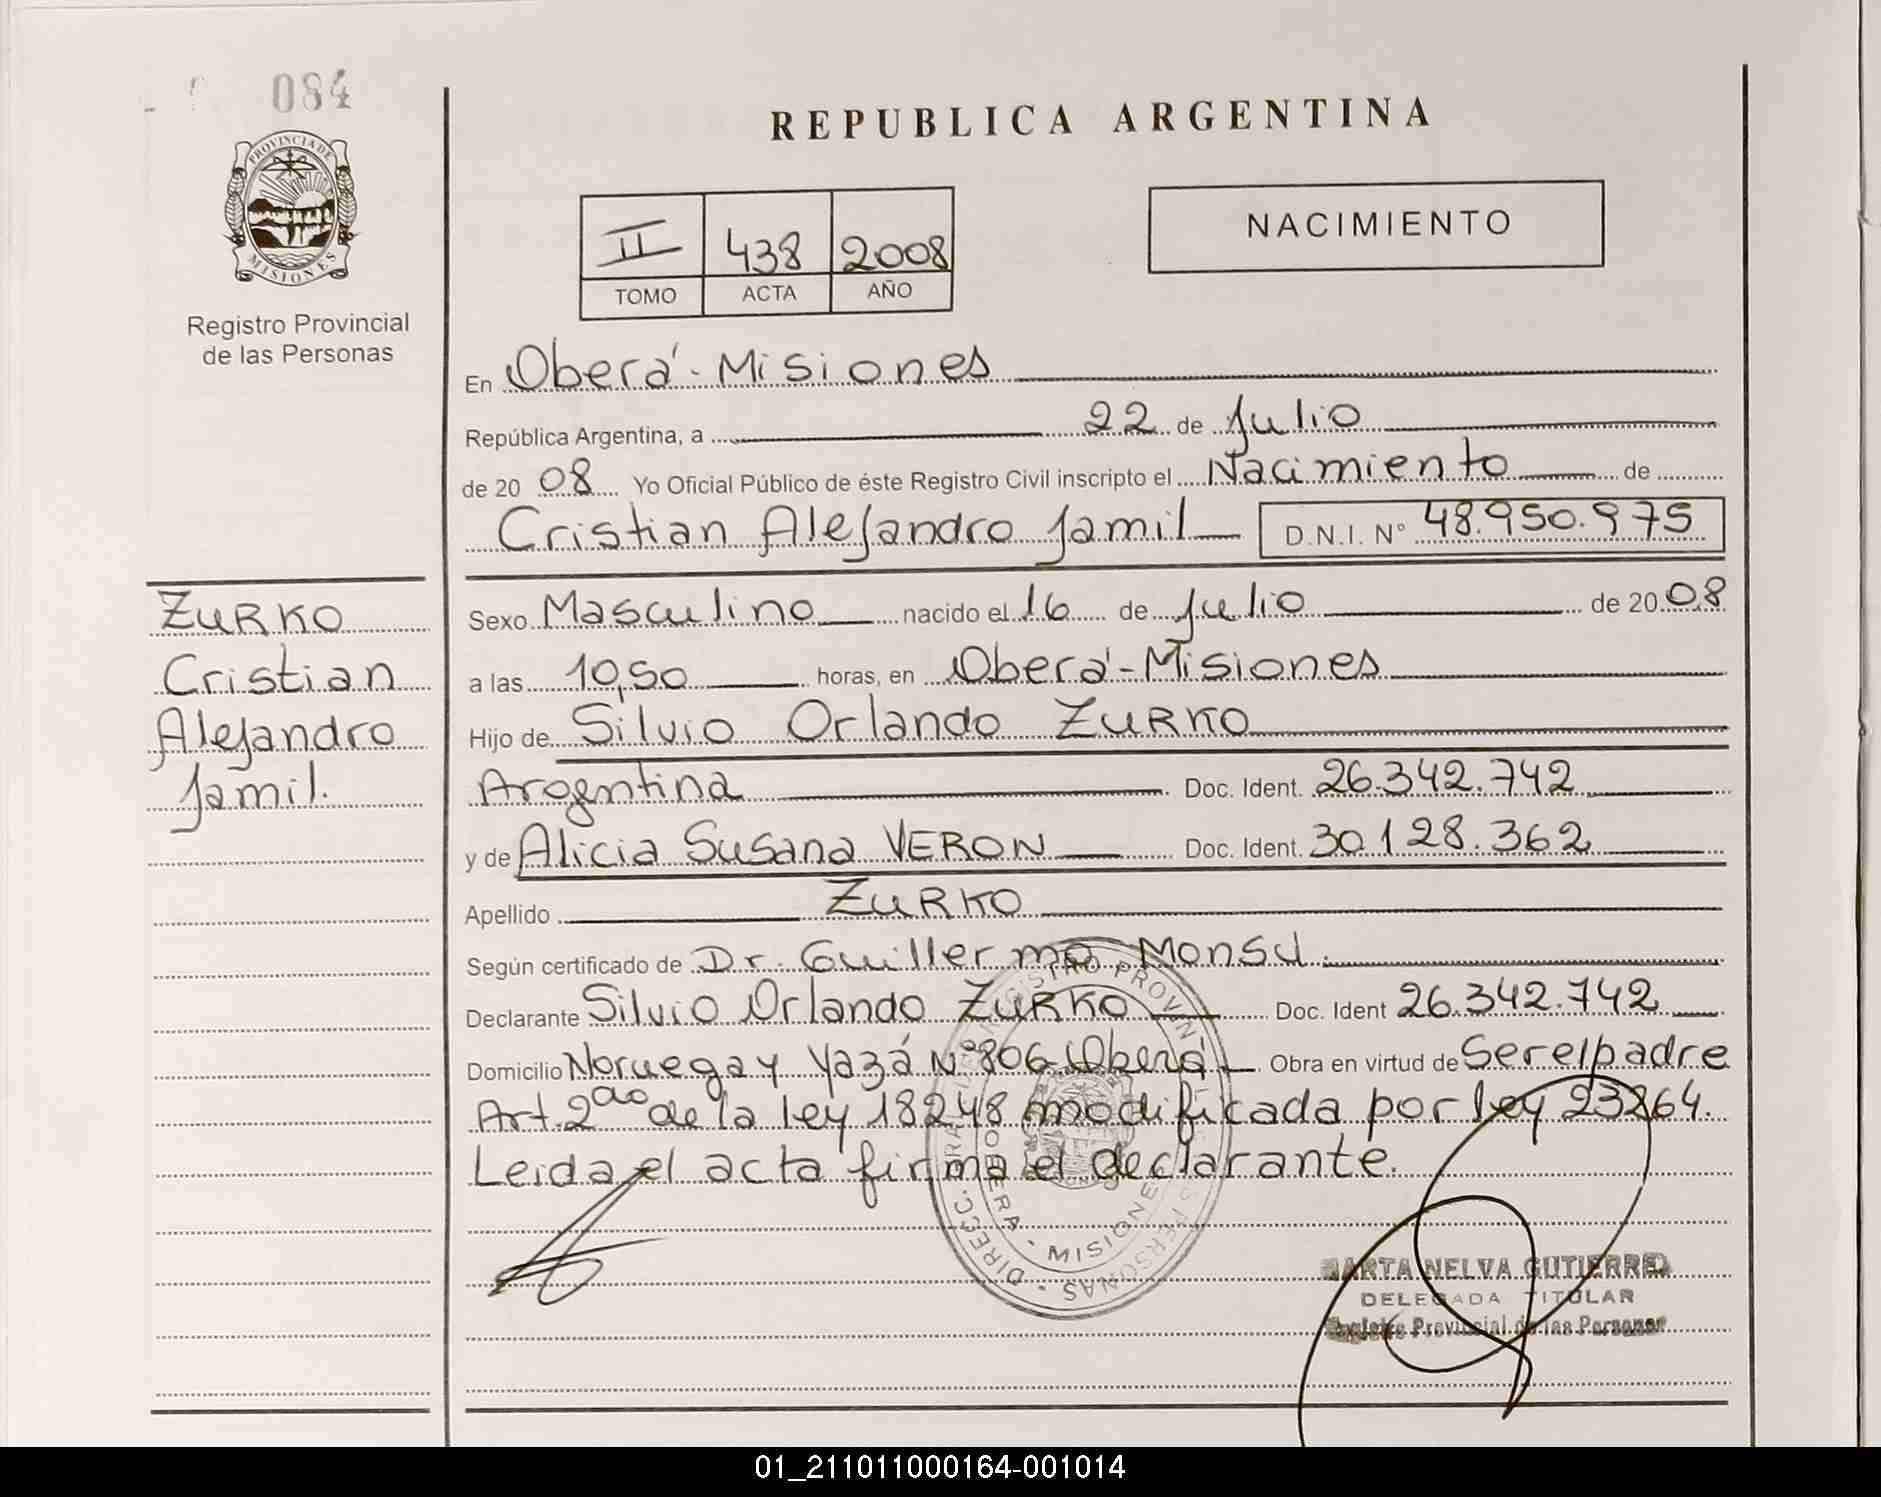 084
PROVINCIA DE
MISIONES
Registro Provincial
de las Personas
REPUBLICA ARGENTINA
II 438 2008
TOMO ACTA AÑO
NACIMIENTO
En Oberá - Misiones
República Argentina, a 22 de Julio
de 20 08 Yo Oficial Público de éste Registro Civil inscripto el Nacimiento de
Cristian Alejandro Jamil D.N.I. N° 48.950.975
ZURKO
Cristian
Alejandro
Jamil.
Sexo Masculino nacido el 16 de Julio de 20 08
a las 10,50 horas, en Oberá - Misiones
Hijo de Silvio Orlando ZURKO
Argentina Doc. Ident. 26.342.742
y de Alicia Susana VERON Doc. Ident. 30.128.362
Apellido ZURKO
Según certificado de Dr. Guillermo Monsú.
Declarante Silvio Orlando ZURKO Doc. Ident 26.342.742
Domicilio Noruega y Yazá N° 806 Oberá Obra en virtud de Ser el padre
Art. 2do de la ley 18248 modificada por ley 23264.
Leida el acta firma el declarante.
MISIONES
MARTA NELVA GUTIERREZ
DELEGADA TITULAR
Registro Provincial de las Personas
01_211011000164-001014